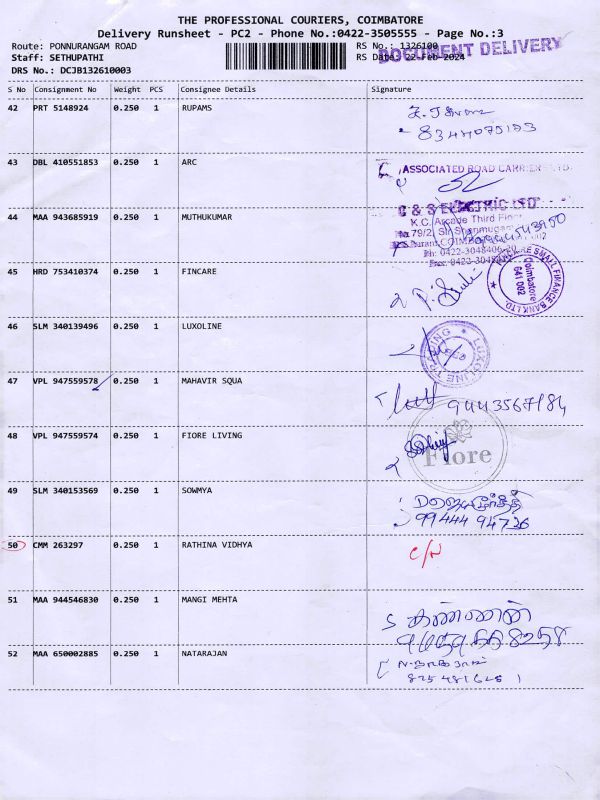 THE PROFESSIONAL COURIERS, COIMBATORE
Delivery Runsheet - PC2 - Phone No.:0422-3505555 - Page No.:3
Route: PONNURANGAM ROAD RS No.: 1326100
Staff: SETHUPATHI RS Date: 22-Feb-2024
DOCUMENT DELIVERY
DRS No.: DCJB132610003
S No Consignment No Weight PCS Consignee Details Signature
42 PRT 5148924 0.250 1 RUPAMS
43 DBL 410551853 0.250 1 ARC
ASSOCIATED ROAD CARRIERS LTD
44 MAA 943685919 0.250 1 MUTHUKUMAR
C & S ELECTRIC LTD
K.C. Arcade Third Floor
No.79/2, Sir Shanmugam
Ph: 0422-3048406
45 HRD 753410374 0.250 1 FINCARE
FINCARE SMALL FINANCE BANK LTD.
Coimbatore
641 002
46 SLM 340139496 0.250 1 LUXOLINE
LUXOLINE TRADING
47 VPL 947559578 0.250 1 MAHAVIR SQUA
9443567184
48 VPL 947559574 0.250 1 FIORE LIVING
Fiore
49 SLM 340153569 0.250 1 SOWMYA
99444 94726
50 CMM 263297 0.250 1 RATHINA VIDHYA
C/N
51 MAA 944546830 0.250 1 MANGI MEHTA
S கண்ணன்
52 MAA 650002885 0.250 1 NATARAJAN